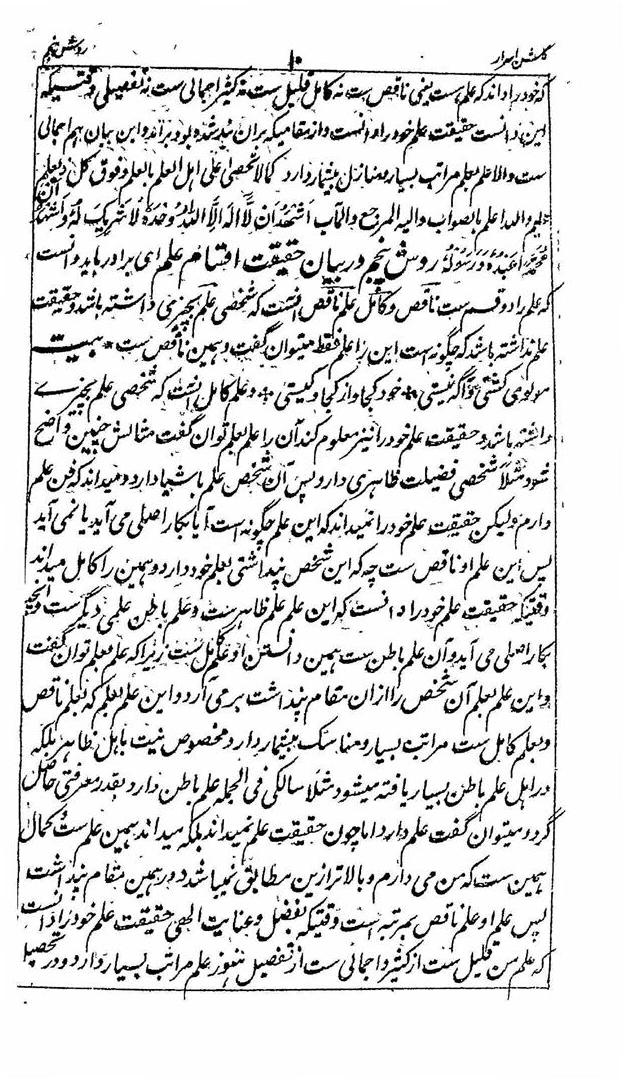 گلشن اسرار ۱۰ روش پنجم
که خود را داند که علم ست یعنی ناقص ست نه کامل قلیل ست نه کثیر اجمالی ست نه تفصیلی وقتیکه
این دانست حقیقت علم خود را دانست و از مقامیکه بران بند شده بود برآمد و این بیان هم اجمالی
ست والا علم بعلم مراتب بسیار و منازل بیشمار دارد کما لا تخصی علی اهل العلم بالعلم وفوق کل ذی علم
علیم والله اعلم بالصواب والیه المرجع والمآب اشهد ان لا اله الا الله وحده لا شریک له واشهد ان
محمدا عبده ورسوله روش پنجم در بیان حقیقت اقسام علم ای برادر باید دانست
که علم را دو قسم ست ناقص و کامل علم ناقص آنست که شخصی علم بچیزی داشته باشد و حقیقت
علم نداشته باشد که چگونه است این را علم فقط میتوان گفت و همین ناقص ست بیت
مولوی گشتی و آگه نیستی خود کجا و از کجا و کیستی و علم کامل آنست که شخصی علم بچیزے
داشته باشد و حقیقت علم خود را نیز معلوم کند آن را علم بعلم توان گفت مثالش چنین واضح
شود مثلا شخصی فضیلت ظاهری دارد پس آن شخص علم باشیا دارد و میداند که فن علم
دارم ولیکن حقیقت علم خود را نمیداند که این علم چگونه است آیا بکار اصلی می آید یا نمی آید
پس این علم او ناقص ست چه که این شخص پنداشتی بعلم خود دارد و همین را کامل میداند
وقتیکه حقیقت علم خود را دانست که این علم علم ظاهر ست و علم باطن علمی دیگر ست و آنچه
بکار اصلی می آید و آن علم باطن ست همین دانستن او علم کامل ست زیرا که علم بعلم توان گفت
و این علم بعلم آن شخص را ازان مقام پنداشت برمی آرد و این علم بعلم که بعلم ناقص
و بعلم کامل ست مراتب بسیار و مناسک بیشمار دارد مخصوص نیست باهل ظاهر بلکه
در اهل علم باطن بسیار یافته میشود مثلا سالکی فی الجمله علم باطن دارد بقدر معرفتی حاصل
کرد و میتوان گفت علم دارد اما چون حقیقت علم نمیداند بلکه میداند همین علم ست و کمال
همین ست که من می دارم و بالاتر ازین مطابق نمیباشد و در همین مقام پنداشت
پس علم او علم ناقص بمرتبه است وقتیکه بفضل و عنایت الهی حقیقت علم خود را دانست
که علم من قلیل ست از کثیر و اجمالی ست از تفصیل هنوز علم مراتب بسیار دارد و در تحصیل